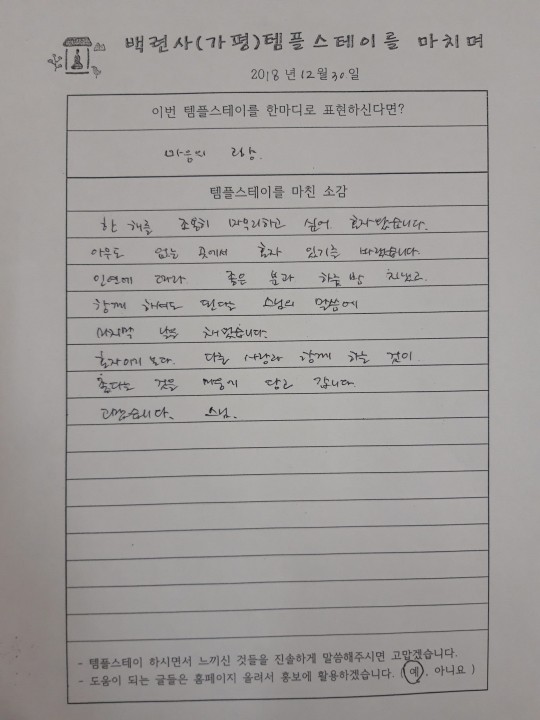 백련사(가평)템플스테이를 마치며
2018년 12월 30일
이번 템플스테이를 한마디로 표현하신다면?
마음의 고향.
템플스테이를 마친 소감
한 해를 조용히 마무리하고 싶어. 혼자 왔습니다.
아무도 없는 곳에서 혼자 있기를 바랬습니다.
인연에 따라 좋은 분과 하룻밤 지냈고.
함께 해여도 된다는 스님의 말씀에
마지막 날을 채웠습니다.
혼자이기 보다. 다른 사람과 함께 하는 것이.
좋다는 것을 깨닫고 갑니다.
고맙습니다. 스님.
- 템플스테이 하시면서 느끼신 것들을 진솔하게 말씀해주시면 고맙겠습니다.
- 도움이 되는 글들은 홈페이지 올려서 홍보에 활용하겠습니다. ( 예 , 아니요 )